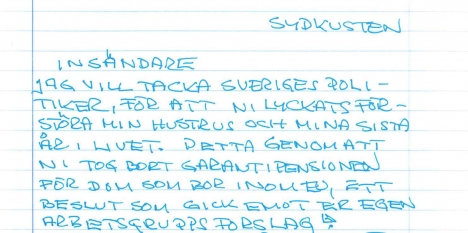 SYDKUSTEN
INSÄNDARE
JAG VILL TACKA SVERIGES POLI-
TIKER, FÖR ATT NI LYCKATS FÖR-
STÖRA MIN HUSTRUS OCH MINA SISTA
ÅR I LIVET. DETTA GENOM ATT
NI TOG BORT GARANTIPENSIONEN
FÖR DOM SOM BOR INOM EU, ETT
BESLUT SOM GICK EMOT ER EGEN
ARBETSGRUPPS FÖRSLAG!